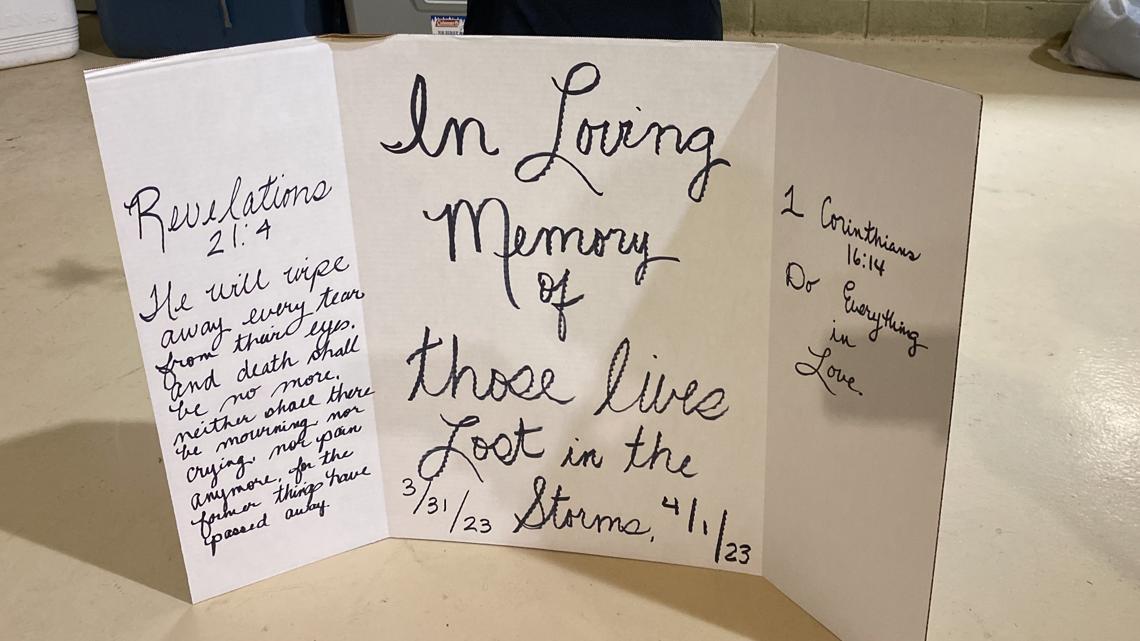 Coleman
Revelations
21:4
He will wipe
away every tear
from their eyes.
and death shall
be no more.
neither shall there
be mourning nor
crying, nor pain
anymore, for the
former things have
passed away.
In Loving
Memory
of
those lives
Lost in the
Storms.
3/31/23
4/1/23
1 Corinthians
16:14
Do Everything
in
Love